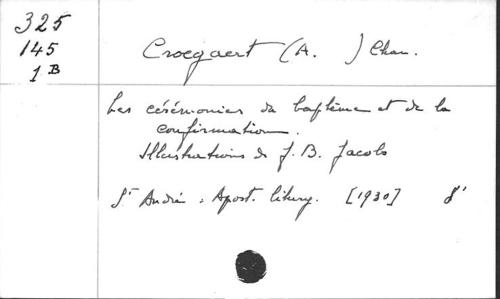 325
145
1 B
Croegaert (A. ) Chan.
Les cérémonies du baptême et de la
confirmation.
Illustrations de J. B. Jacobs
St André, Apost. liturg. [1930] 8°